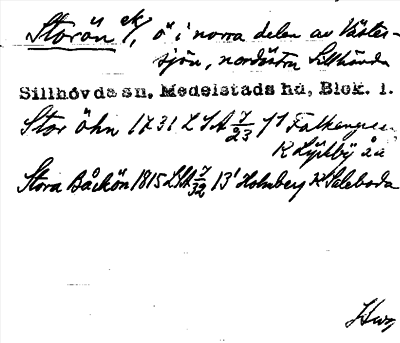 Storön ek/, ö i norra delen av Väster-
sjön, nordöstra Sillhövda
Sillhövda sn. Medelstads hd, Blek. l.
Stor öhn 1731 LSA 7/23 f1 Falkengren
K Lyckby åa
Stora Båckön 1815 LSA 7/32 13¹ Holmberg K Saleboda